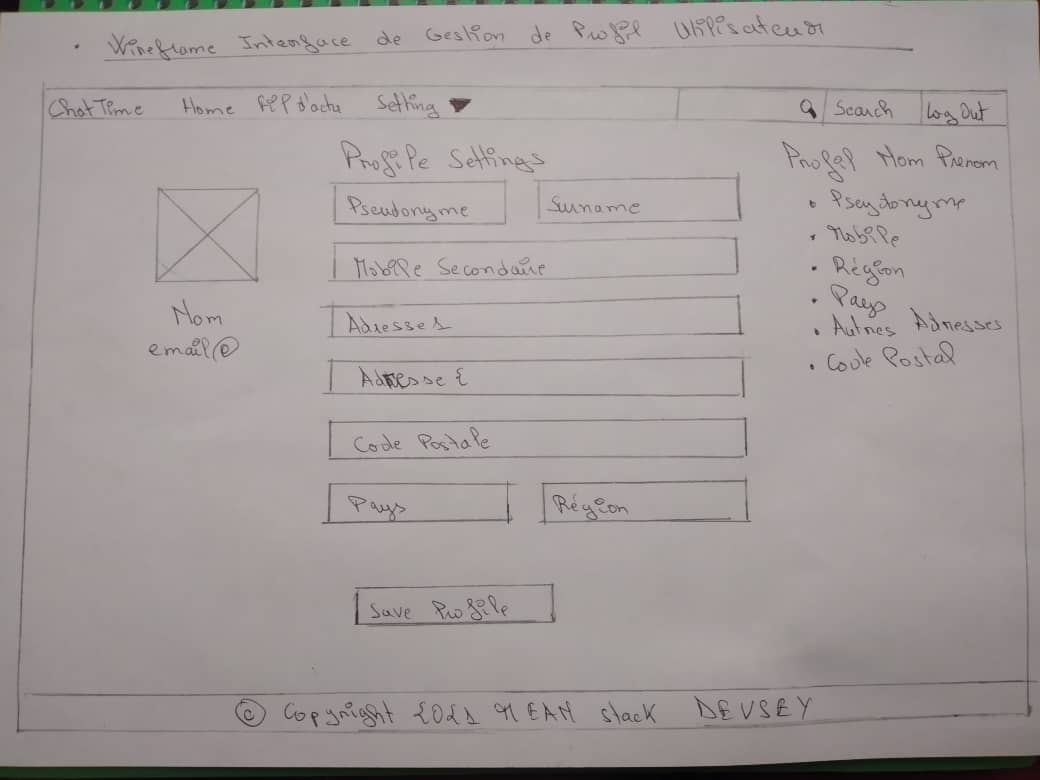 Wireframe Interface de Gestion de Profil Utilisateur
ChatTime Home Fil d'actu Setting Search Log Out
Profile Settings
Pseudonyme Surname
Mobile Secondaire
Adresse 1
Adresse 2
Code Postale
Pays Région
Save Profile
Nom
email@
Profil Nom Prenom
• Pseydonyme
• Mobile
• Région
• Pays
• Autres Adresses
• Code Postal
© Copyright 2021 MEAN stack DEVSEY